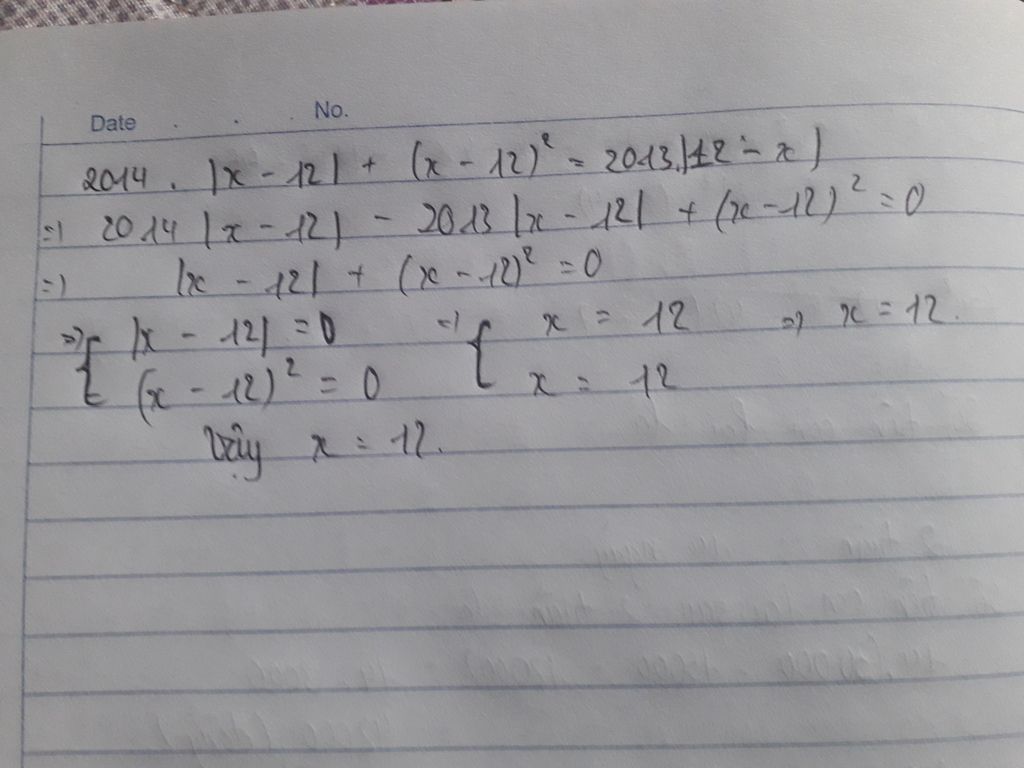 Date . . . No.
2014. |x - 12| + (x - 12)² = 2013.|12 - x|
=) 2014 |x - 12| - 2013 |x - 12| + (x - 12)² = 0
=) |x - 12| + (x - 12)² = 0
=) { |x - 12| = 0 =) { x = 12 => x = 12.
(x - 12)² = 0 x = 12
Vậy x = 12.